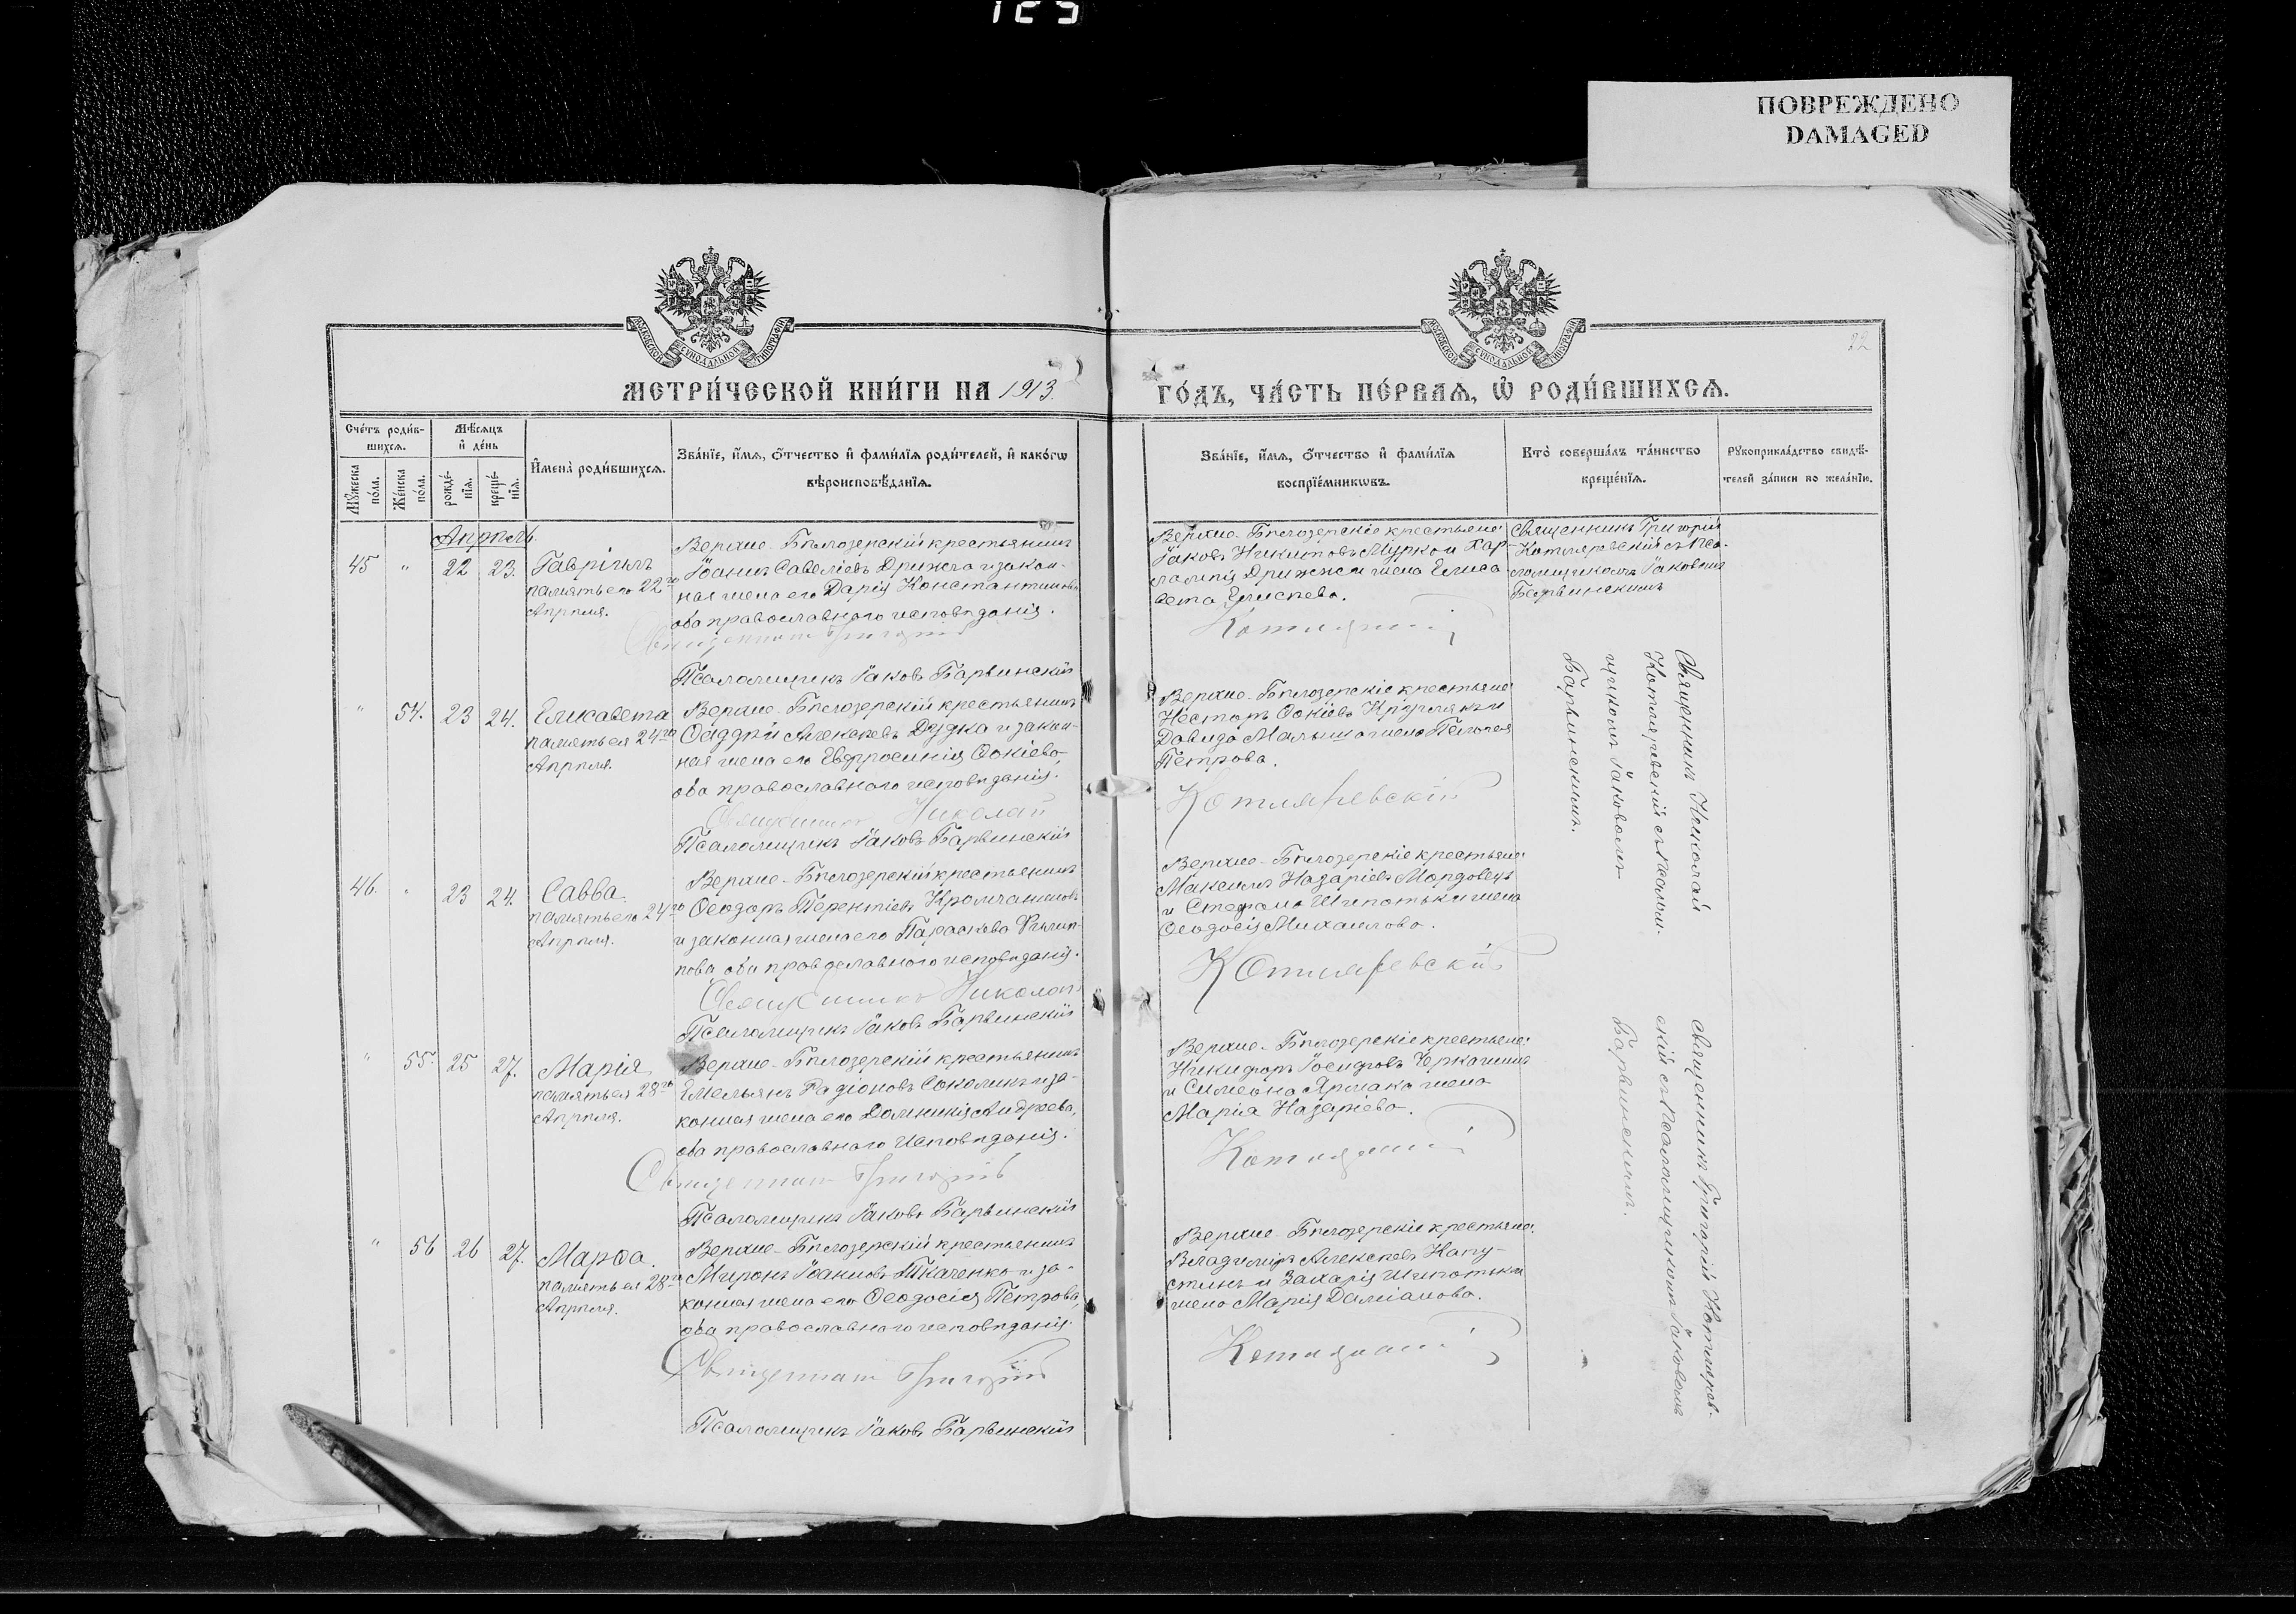 125
ПОВРЕЖДЕНО
DAMAGED
22
МОСКОВСКОЙ СѴНОДАЛЬНОЙ ТИПОГРАФІИ
МОСКОВСКОЙ СѴНОДАЛЬНОЙ ТИПОГРАФІИ
МЕТРИ́ЧЕСКОЙ КНИ́ГИ НА 1913.
ГО́ДЪ, ЧА́СТЬ ПЕ́РВАЯ, Ѽ РОДИ́ВШИХСЯ.
Сче́тъ роди́в-
шихся.
Мѣ́сяцъ
и҆ де́нь
Мꙋ́жеска
по́ла.
Же́нска
по́ла.
рожде́-
нїя.
креще́-
нїя.
И҆мена̀ роди́вшихся.
Зва́нїе, и҆́мя, ѻ҆́тчество и҆ фами́лїя роди́телей, и҆ како́гѡ
вѣроисповѣ́данїя.
Зва́нїе, и҆́мя, ѻ҆́тчество и҆ фами́лїя
воспрїе́мникѡвъ.
Кто̀ соверша́лъ та́инство
креще́нїя.
Рꙋкоприкла́дство свидѣ́-
телей за́писи по жела́нїю.
Апрѣль.
45 " 22 23. Гавріилъ
память его 22го
Апрѣля.
Верхне-Бѣлозерскій крестьянинъ
Іоаннъ Савеліевъ Дрижега и закон-
ная жена его Дарія Константинова
оба православнаго исповѣданія.
Священникъ Григорій
Псаломщикъ Іаковъ Барвинскій
Верхне-Бѣлозерскіе крестьяне:
Іаковъ Никитовъ Мурко и Хар-
лампія жена Елиса
вета Елисеева.
Священникъ Григорій
Котляревскій съ пса-
ломщикомъ Іаковомъ
Барвинскимъ
" 54. 23 24. Елисавета
память ея 24го
Апрѣля.
Верхне-Бѣлозерскій крестьянинъ
Ѳаддей Алексѣевъ Дудка и закон-
ная жена его Евфросинія Ѳокіева,
оба православнаго исповѣданія.
Священникъ Николай
Псаломщикъ Іаковъ Барвинскій
Верхне-Бѣлозерскіе крестьяне:
Несторъ Ѳокіевъ Кругляк и
Давида жена Пелагея
Петрова.
Котляревскій
Священникъ Николай
Котляревскій съ псалом-
щикомъ Іаковомъ
Барвинскимъ.
46. " 23 24. Савва.
память его 24го
Апрѣля.
Верхне-Бѣлозерскій крестьянинъ
Ѳеодоръ Терентіевъ
и законная жена его Параскева Филип-
пова оба православнаго исповѣданія.
Священникъ Николай
Псаломщикъ Іаковъ Барвинскій
Верхне-Бѣлозерскіе крестьяне:
Максимъ Назаріевъ Мордовецъ
и Стефана Шипотька жена
Ѳеодосія Михаилова.
Котляревскій
" 55. 25 27. Марія
память ея 28го
Апрѣля.
Верхне-Бѣлозерскій крестьянинъ
Емельянъ Радіоновъ Соколикъ и за-
конная жена его Домникія Андреева,
оба православнаго исповѣданія.
Священникъ Григорій
Псаломщикъ Іаковъ Барвинскій
Верхне-Бѣлозерскіе крестьяне:
Никифоръ Іосифовъ Черкашинъ
и Симеона Ярмака жена
Марія Назаріева.
Священникъ Григорій Котлярев-
скій съ псаломщикомъ Іаковомъ
Барвинскимъ.
" 56 26 27. Марѳа.
память ея 28го
Апрѣля.
Верхне-Бѣлозерскій крестьянинъ
Миронъ Іоанновъ Ткаченко и за-
конная жена его Ѳеодосія Петрова,
оба православнаго исповѣданія.
Священникъ Григорій
Псаломщикъ Іаковъ Барвинскій
Верхне-Бѣлозерскіе крестьяне:
Владиміръ Алексѣевъ Капу-
стинъ и Захарія Шипотька
жена Марія Даміанова.